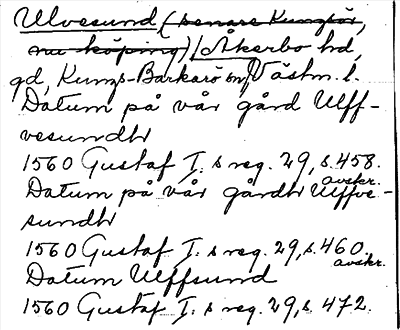 Ulvesund (senare Kungsör,
nu köping) Åkerbo hd,
gd, Kungs-Barkarö sn, Västm. l.
Datum på vår gård Ulff-
vesundh
1560 Gustaf I:s reg. 29, s. 458.
avskr.
Datum på vår gårdh Ulffve-
sundh
1560 Gustaf I:s reg. 29, s. 460.
avskr.
Datum Ulffsund
1560 Gustaf I:s reg. 29, s. 472.